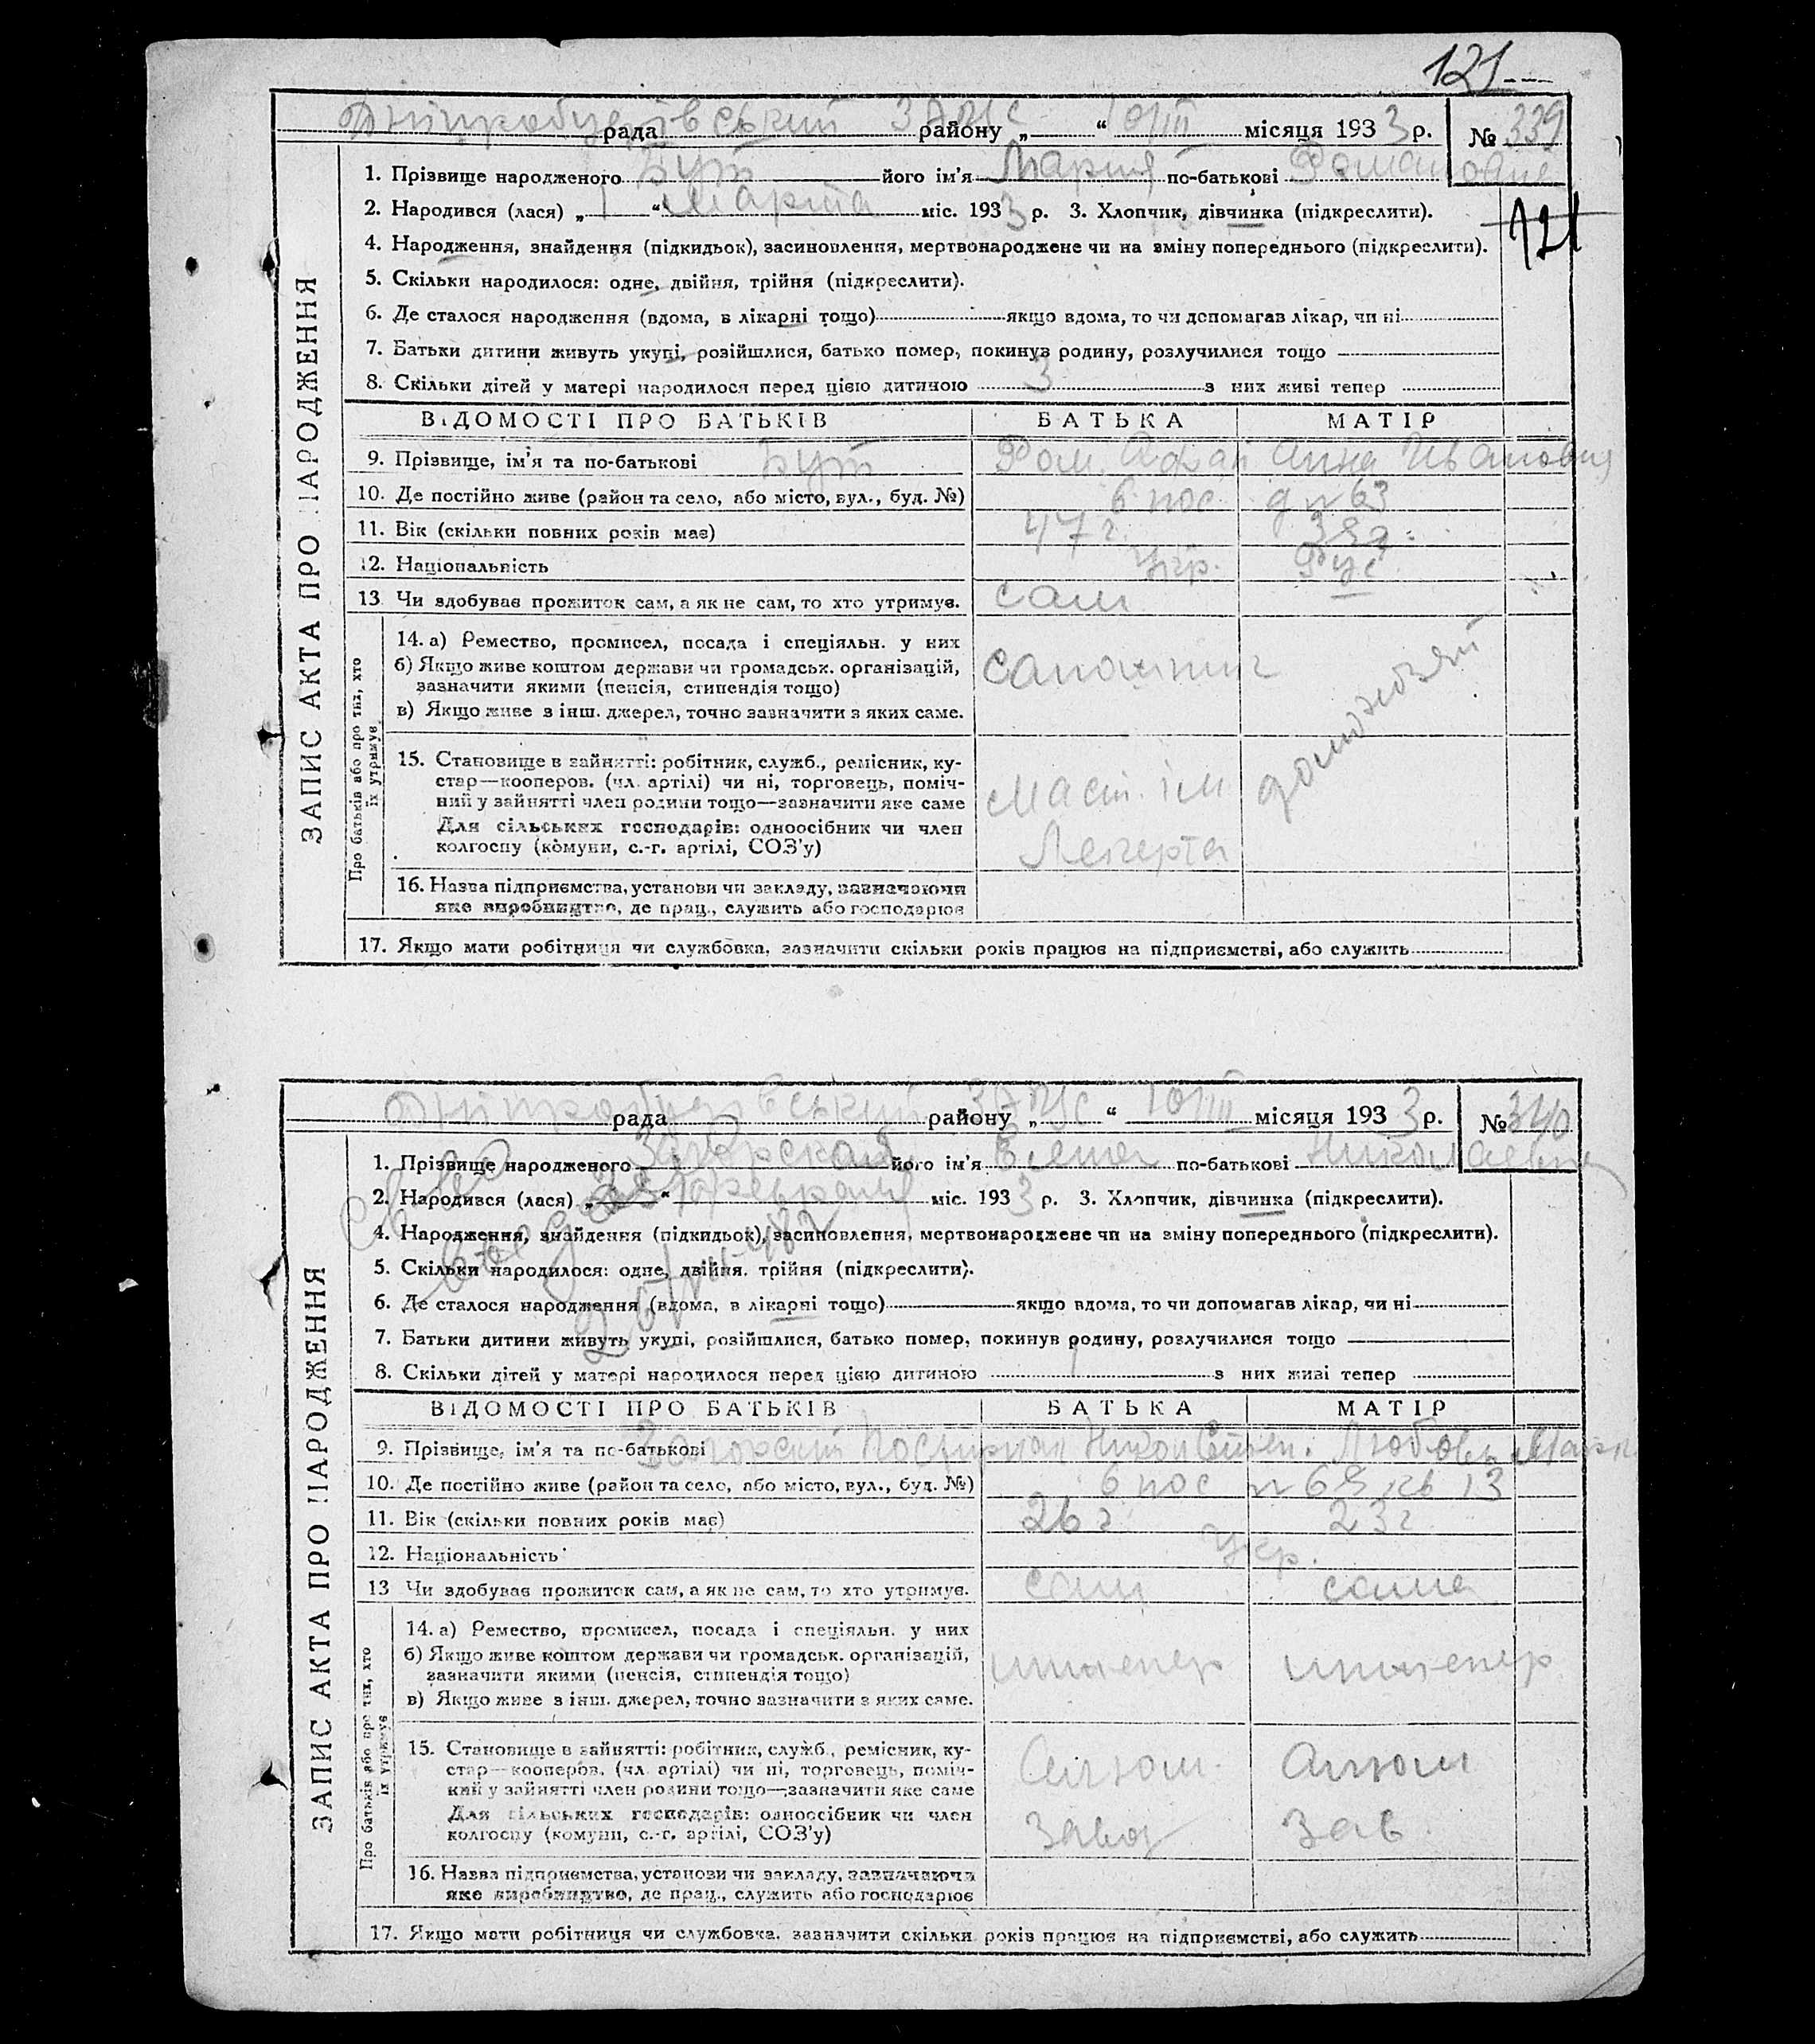 121
рада районy „ “ 10/III місяця 1933 р. № 339
1. Прізвище народженого Бут його ім'я Мария по-батькові Романовна
2. Народився (лася) „1“ Марта міс. 1933 р. 3. Хлопчик, дівчинка (підкреслити).
121
4. Народження, знайдення (підкидьок), засиновлення, мертвонароджене чи на зміну попереднього (підкреслити).
5. Скільки народилося: одне, двійня, трійня (підкреслити).
6. Де сталося народження (вдома, в лікарні тощо) якщо вдома, то чи допомагав лікар, чи ні
7. Батьки дитини живуть укупі, розійшлися, батько помер, покинув родину, розлучилися тощо
8. Скільки дітей у матері народилося перед цією дитиною 3 з них живі тепер
ЗАПИС АКТА ПРО НАРОДЖЕННЯ
ВІДОМОСТІ ПРО БАТЬКІВ БАТЬКА МАТІР
9. Прізвище, ім'я та по-батькові Бут Ром. Анна Ивановна
10. Де постійно живе (район та село, або місто, вул., буд. №) 6 пос д n 63
11. Вік (скільки повних років має) 47 г.
12. Національність Укр. Рус
13 Чи здобуває прожиток сам, а як не сам, то хто утримує. сам
Про батьків або про тих, хто їх утримує
14. а) Ремество, промисел, посада і спеціяльн. у них
б) Якщо живе коштом держави чи громадськ. організацій,
зазначити якими (пенсія, стипендія тощо) сапожник
в) Якщо живе з інш. джерел, точно зазначити з яких саме.
домохозяй
15. Становище в зайнятті: робітник, служб., ремісник, ку-
стар—кооперов. (чл. артілі) чи ні, торговець, поміч-
ний у зайнятті член родини тощо—зазначити яке саме маст. ім
Для сільських господарів: одноосібник чи член
колгоспу (комуни, с.-г. артілі, СОЗ'у)
16. Назва підприємства, установи чи закладу, зазначаючи
яке виробництво, де прац., служить або господарює
17. Якщо мати робітниця чи службовка, зазначити скільки років працює на підприємстві, або служить
рада районy „ “ 10/III місяця 1933 р. № 340
1. Прізвище народженого його ім'я Елена по-батькові Николаевна
2. Народився (лася) „ “ февраля міс. 1933 р. 3. Хлопчик, дівчинка (підкреслити).
4. Народження, знайдення (підкидьок), засиновлення, мертвонароджене чи на зміну попереднього (підкреслити).
5. Скільки народилося: одне, двійня, трійня (підкреслити).
6. Де сталося народження (вдома, в лікарні тощо) якщо вдома, то чи допомагав лікар, чи ні
7. Батьки дитини живуть укупі, розійшлися, батько помер, покинув родину, розлучилися тощо
8. Скільки дітей у матері народилося перед цією дитиною 1 з них живі тепер
ЗАПИС АКТА ПРО НАРОДЖЕННЯ
ВІДОМОСТІ ПРО БАТЬКІВ БАТЬКА МАТІР
9. Прізвище, ім'я та по-батькові Любовь
10. Де постійно живе (район та село, або місто, вул., буд. №) 6 пос кв 13
11. Вік (скільки повних років має) 26 г 23 г
12. Національність Укр.
13 Чи здобуває прожиток сам, а як не сам, то хто утримує. сам сама
Про батьків або про тих, хто їх утримує
14. а) Ремество, промисел, посада і спеціяльн. у них
б) Якщо живе коштом держави чи громадськ. організацій,
зазначити якими (пенсія, стипендія тощо) инженер инженер
в) Якщо живе з інш. джерел, точно зазначити з яких саме.
15. Становище в зайнятті: робітник, служб., ремісник, ку-
стар—кооперов. (чл. артілі) чи ні, торговець, поміч- Алюм. Алюм
ний у зайнятті член родини тощо—зазначити яке саме
Для сільських господарів: одноосібник чи член
колгоспу (комуни, с.-г. артілі, СОЗ'у) Завод Зав.
16. Назва підприємства, установи чи закладу, зазначаючи
яке виробництво, де прац., служить або господарює
17. Якщо мати робітниця чи службовка, зазначити скільки років працює на підприємстві, або служить